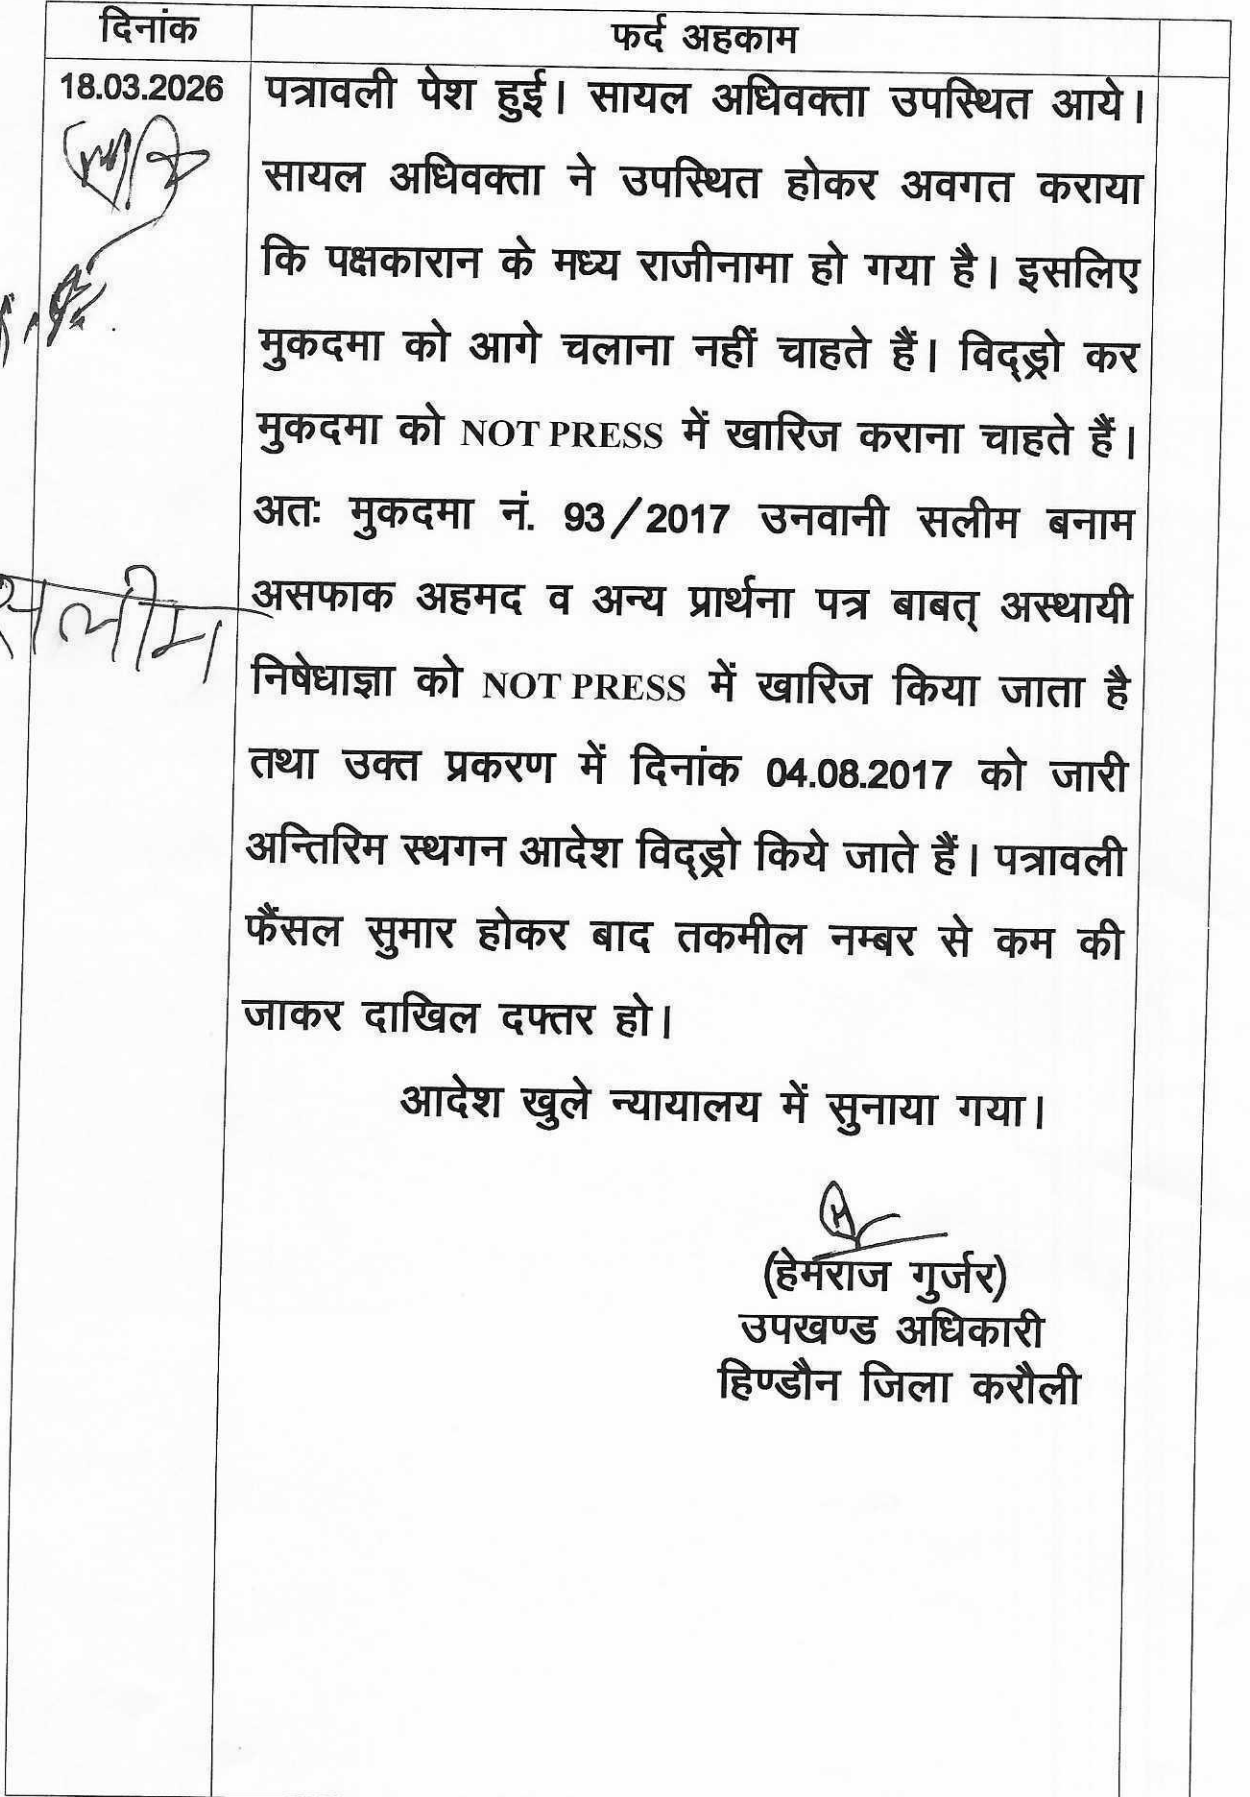 दिनांक
फर्द अहकाम
18.03.2026
पत्रावली पेश हुई। सायल अधिवक्ता उपस्थित आये।
सायल अधिवक्ता ने उपस्थित होकर अवगत कराया
कि पक्षकारान के मध्य राजीनामा हो गया है। इसलिए
मुकदमा को आगे चलाना नहीं चाहते हैं। विद्ड्रो कर
मुकदमा को NOT PRESS में खारिज कराना चाहते हैं।
अतः मुकदमा नं. 93/2017 उनवानी सलीम बनाम
असफाक अहमद व अन्य प्रार्थना पत्र बाबत् अस्थायी
निषेधाज्ञा को NOT PRESS में खारिज किया जाता है
तथा उक्त प्रकरण में दिनांक 04.08.2017 को जारी
अन्तिरिम स्थगन आदेश विद्ड्रो किये जाते हैं। पत्रावली
फैंसल सुमार होकर बाद तकमील नम्बर से कम की
जाकर दाखिल दफ्तर हो।
आदेश खुले न्यायालय में सुनाया गया।
सलीम
(हेमराज गुर्जर)
उपखण्ड अधिकारी
हिण्डौन जिला करौली